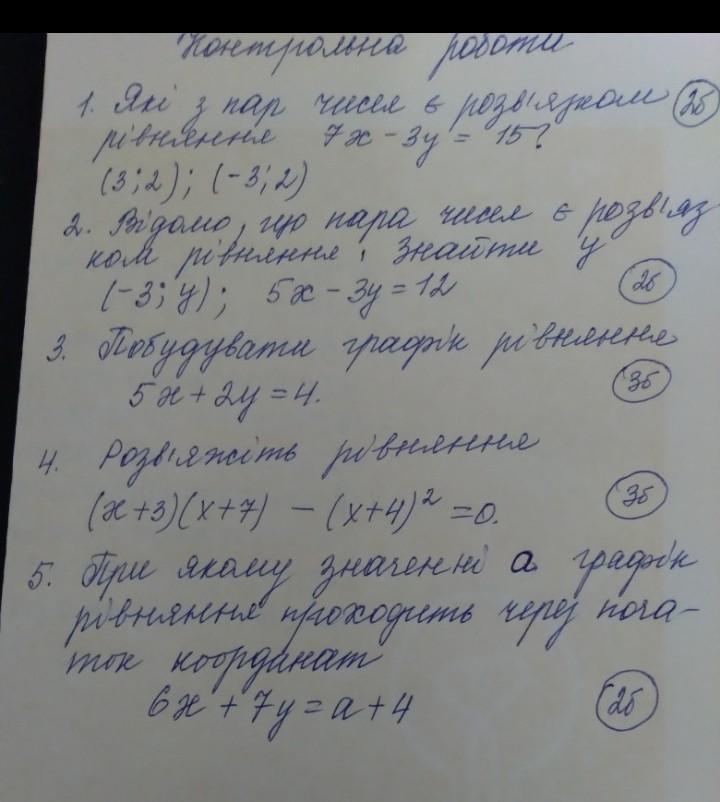 Контрольна робота
1. Які з пар чисел є розв'язком 2б
рівняння 7x - 3y = 15?
(3;2); (-3;2)
2. Відомо, що пара чисел є розв'яз
ком рівняння. Знайти y
(-3; y); 5x - 3y = 12 2б
3. Побудувати графік рівняння
5x + 2y = 4. 3б
4. Розв'яжіть рівняння
(x+3)(x+7) - (x+4)² = 0. 3б
5. При якому значенні a графік
рівняння проходить через поча-
ток координат
6x + 7y = a + 4 2б